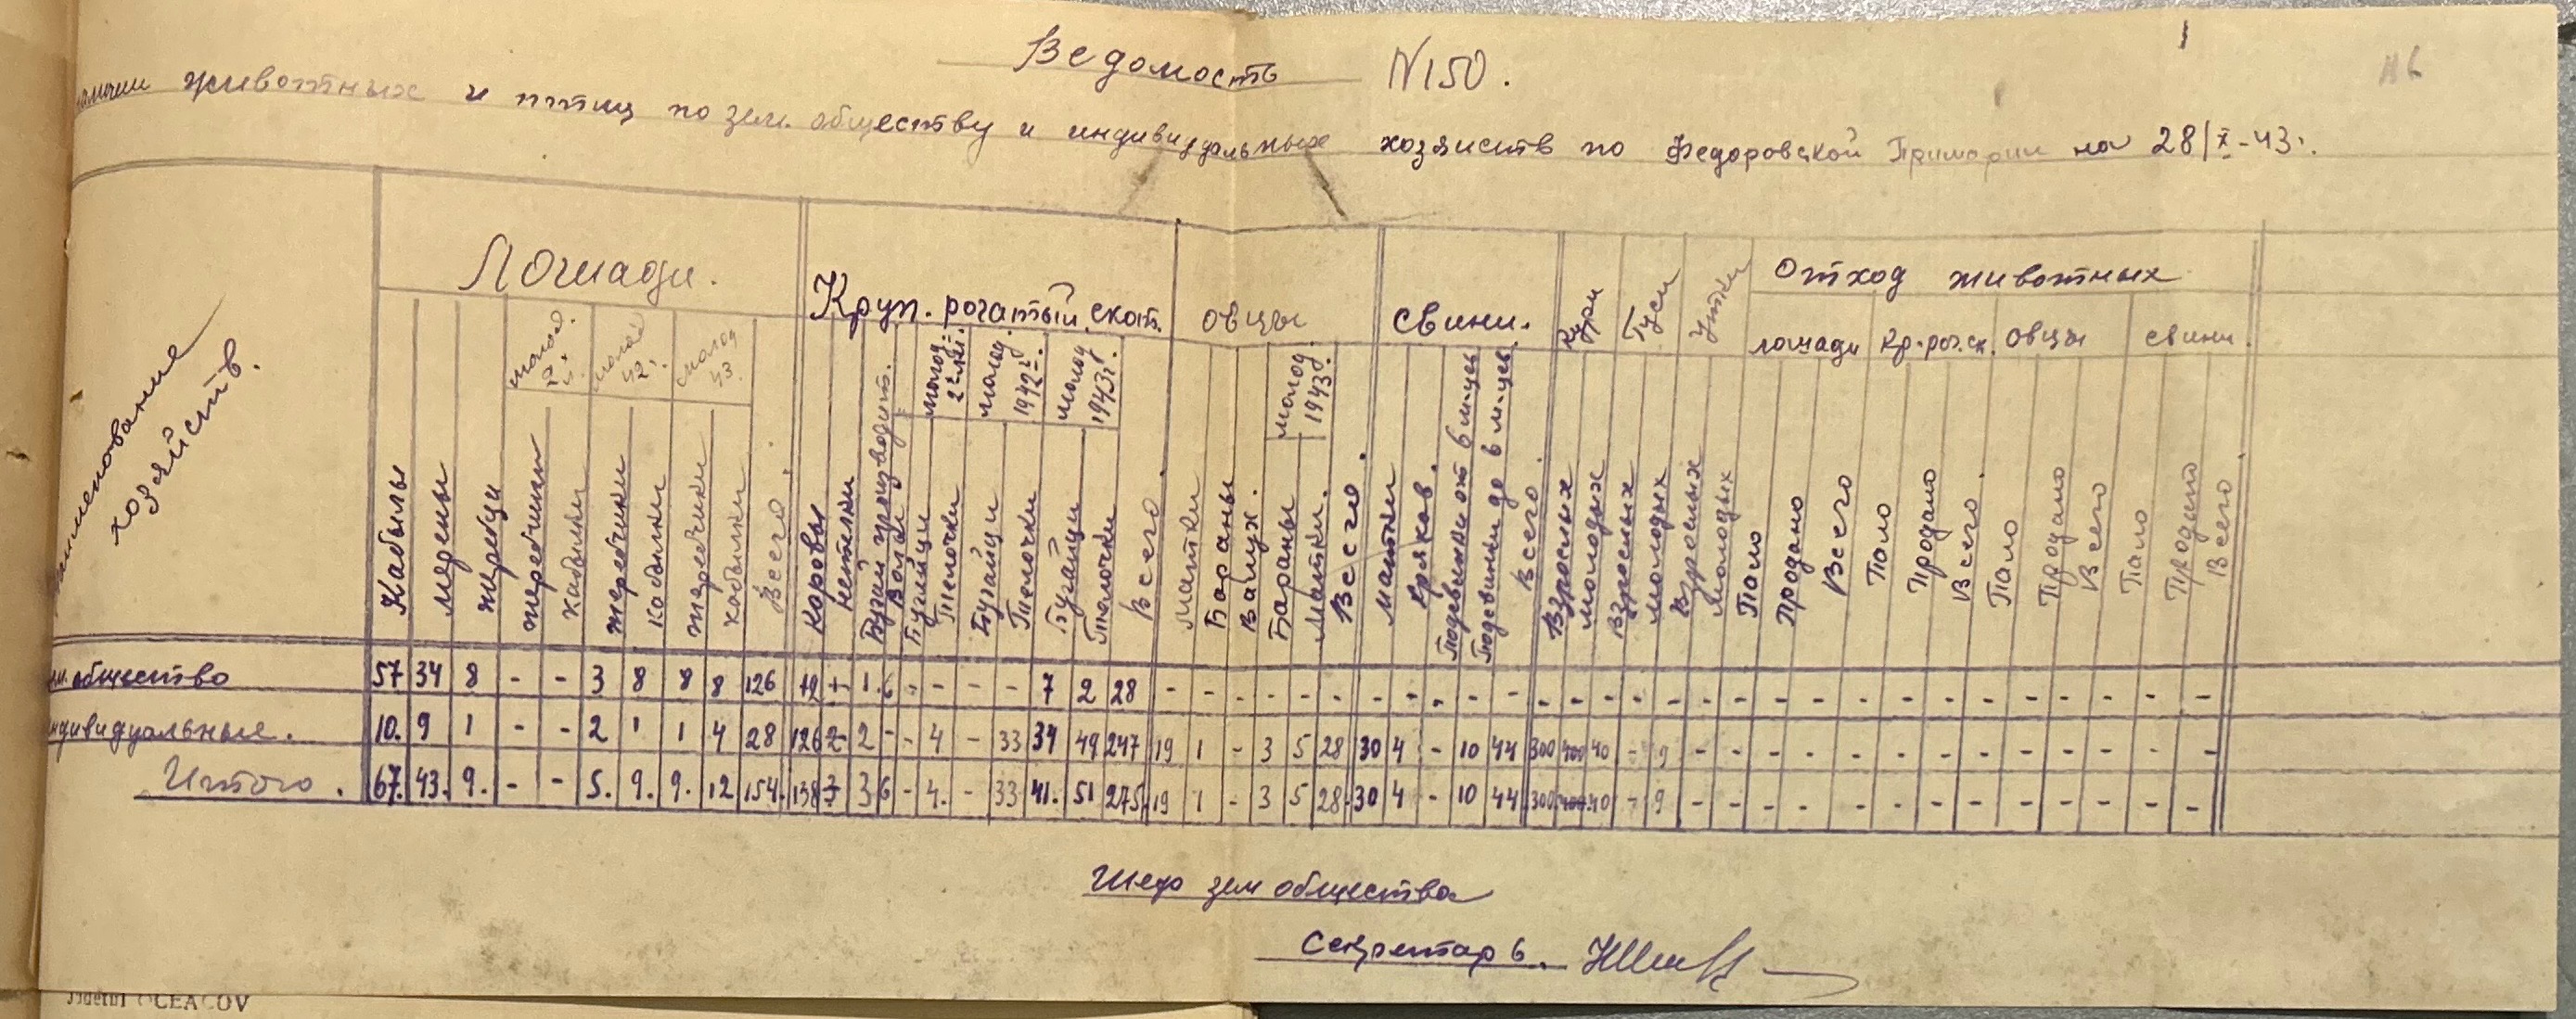 Ведомость №150.
животных и птиц по зем. обществу и индивидуальных хозяиств по Федоровской Примарии на 28/X-43г.
116
хозяйств.
Лошади.
Круп. рогатый скот.
овцы
свини.
Кури
Гуси
Утки
Отход животных
молод. 2г.
молод 42г.
молод 43.
молод. 2х лкі.
молод. 1942г.
молод 1943г.
молод. 1943г.
лошади
Кр.рог.ск.
Овцы
свини.
Кабылы
мерены
жеребци
жеребчики
кабылки
жеребчики
кабылки
жеребчики
кабылки
Всего.
Коровы
нетелки
Бугаи производит.
Волы
Бугайци
Телочки
Бугайци
Телочки
Бугайци
Телочки
Всего.
матки
Бараны
Валух.
Бараны
Матки.
Всего.
матки
Кряков.
Подсвинки от 6 м-цев
Подсвинки до 6 м-цев
Всего.
Взрослых
молодых
Взрослых
молодых
Взрослых
молодых
Пало
Продано
Всего
Пало
Продано
Всего.
Пало
Продано
Всего
Пало
Продано
Всего.
общество 57 34 8 - - 3 8 8 8 126 19 + 1. 6 - - - - 7 2 28 - - - - - - - - - - - - - - - - - - - - - - - - - - - - -
индивидуальные. 10. 9 1 - - 2 1 1 4 28 126 2 2 - - 4 - 33 34 49 247 19 1 - 3 5 28 30 4 - 10 44 300 400 40 - 9 - - - - - - - - - - - - - -
Итого. 67. 43. 9. - - 5. 9. 9. 12 154. 138 3 6 - 4. - 33 41. 51 275. 19 1 - 3 5 28. 30 4 - 10 44. 300 400. 40 - 9 - - - - - - - - - - - - - -
Шеф зем общества
Секретарь.
OCEACOV